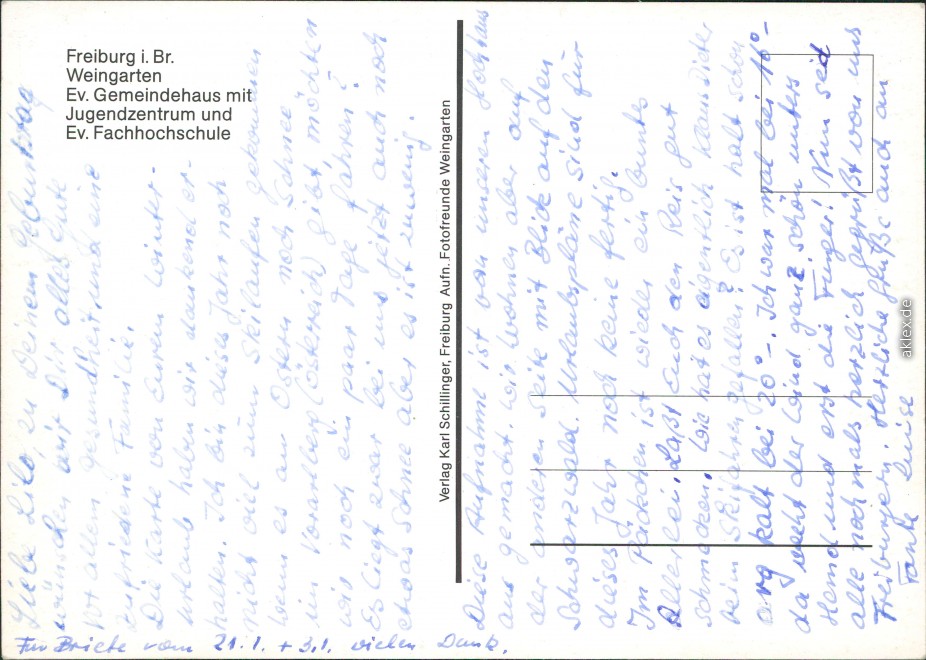 Freiburg i. Br.
Weingarten
Ev. Gemeindehaus mit
Jugendzentrum und
Ev. Fachhochschule
Liebe Lilo, zu Deinem Geburtstag
wünschen wir Dir alles Gute
vor allem Gesundheit und eine
zufriedene Familie.
Die Karte von Eurem Winter-
urlaub haben wir dankend er-
halten. Ich bin dieses Jahr noch
nicht viel zum Skilaufen gekommen
wenn es an Ostern noch Schnee
in Vorarlberg (Österreich) gibt, möchten
wir noch ein paar Tage fahren?
Es liegt zwar bei uns jetzt auch noch
etwas Schnee aber es ist wenig.
Für Briefe vom 21.1. + 3.1. vielen Dank.
Verlag Karl Schillinger, Freiburg Aufn. Fotofreunde Weingarten
Diese Aufnahme ist von unserem Hochhaus
aus gemacht. Wir wohnen aber auf
der anderen Seite mit Blick auf den
Schwarzwald. Urlaubspläne sind für
dieses Jahr noch keine fertig.
Im Päckchen ist wieder ein bunts
Allerlei. Laßt Euch den Reis gut
schmecken. Wie hat es eigentlich Klaus Dieter
beim Skifahren gefallen? Es ist halt schon
arg kalt bei 20°-. Ich war mal bei 16°-
da weht der Wind ganz schön unters
Hemd und erst die Finger! Nun seid
alle nochmals herzlich gegrüßt von uns
Freiburgern. Herzliche Grüße auch an
Tante Luise
aklex.de